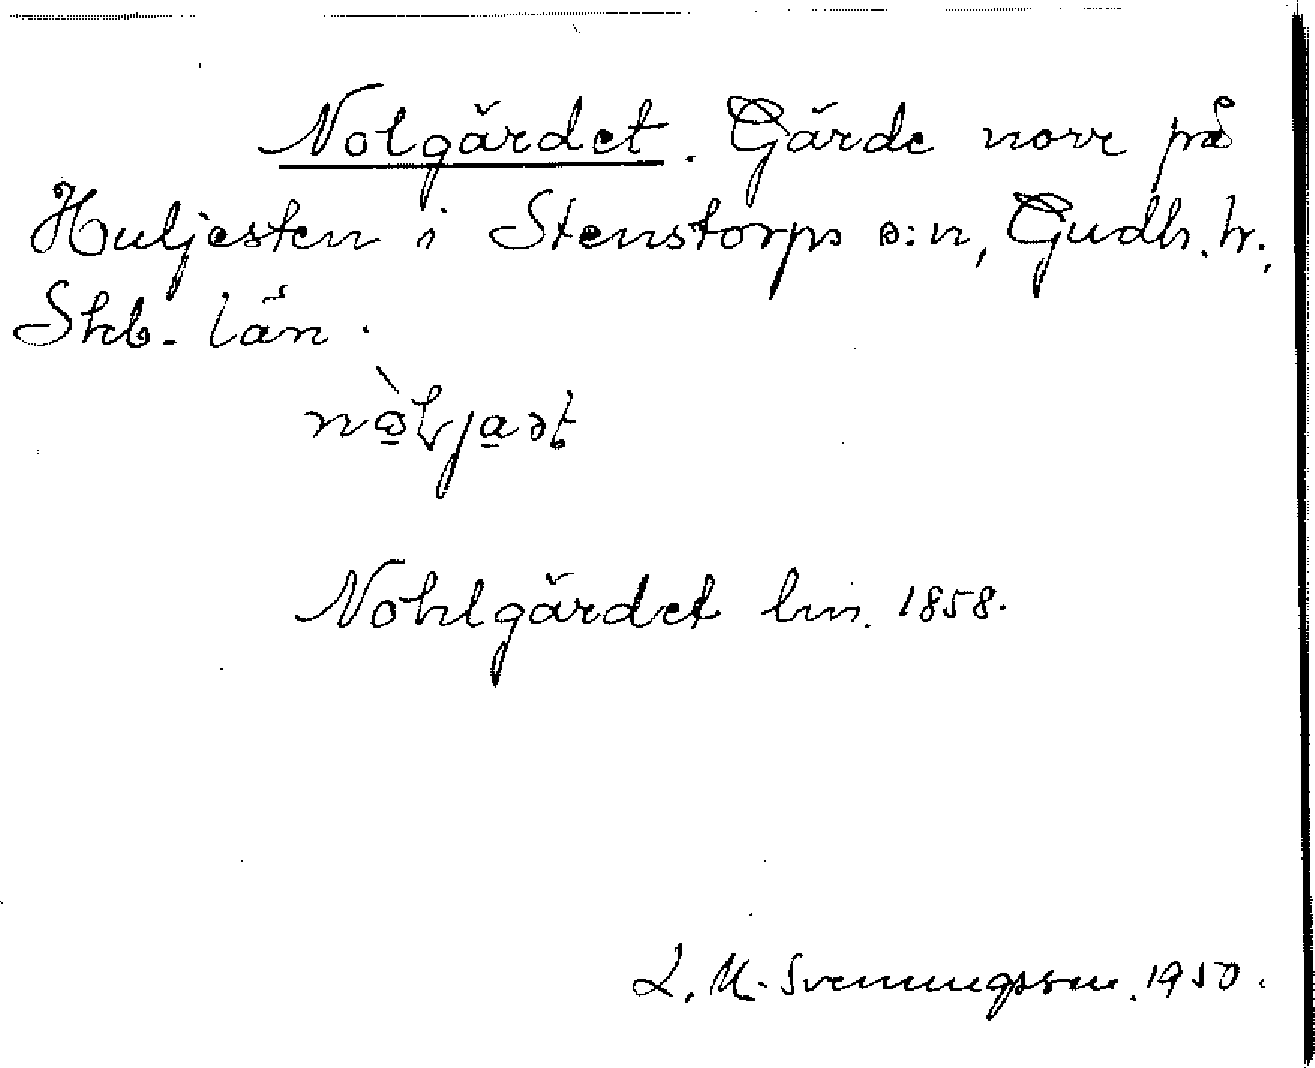 Nolgärdet. Gärde norr på
Huljesten i Stenstorps s:n, Gudh. hr.,
Skb. län.
Nohlgärdet hm. 1858.
L. M. Svenungsson. 1950.